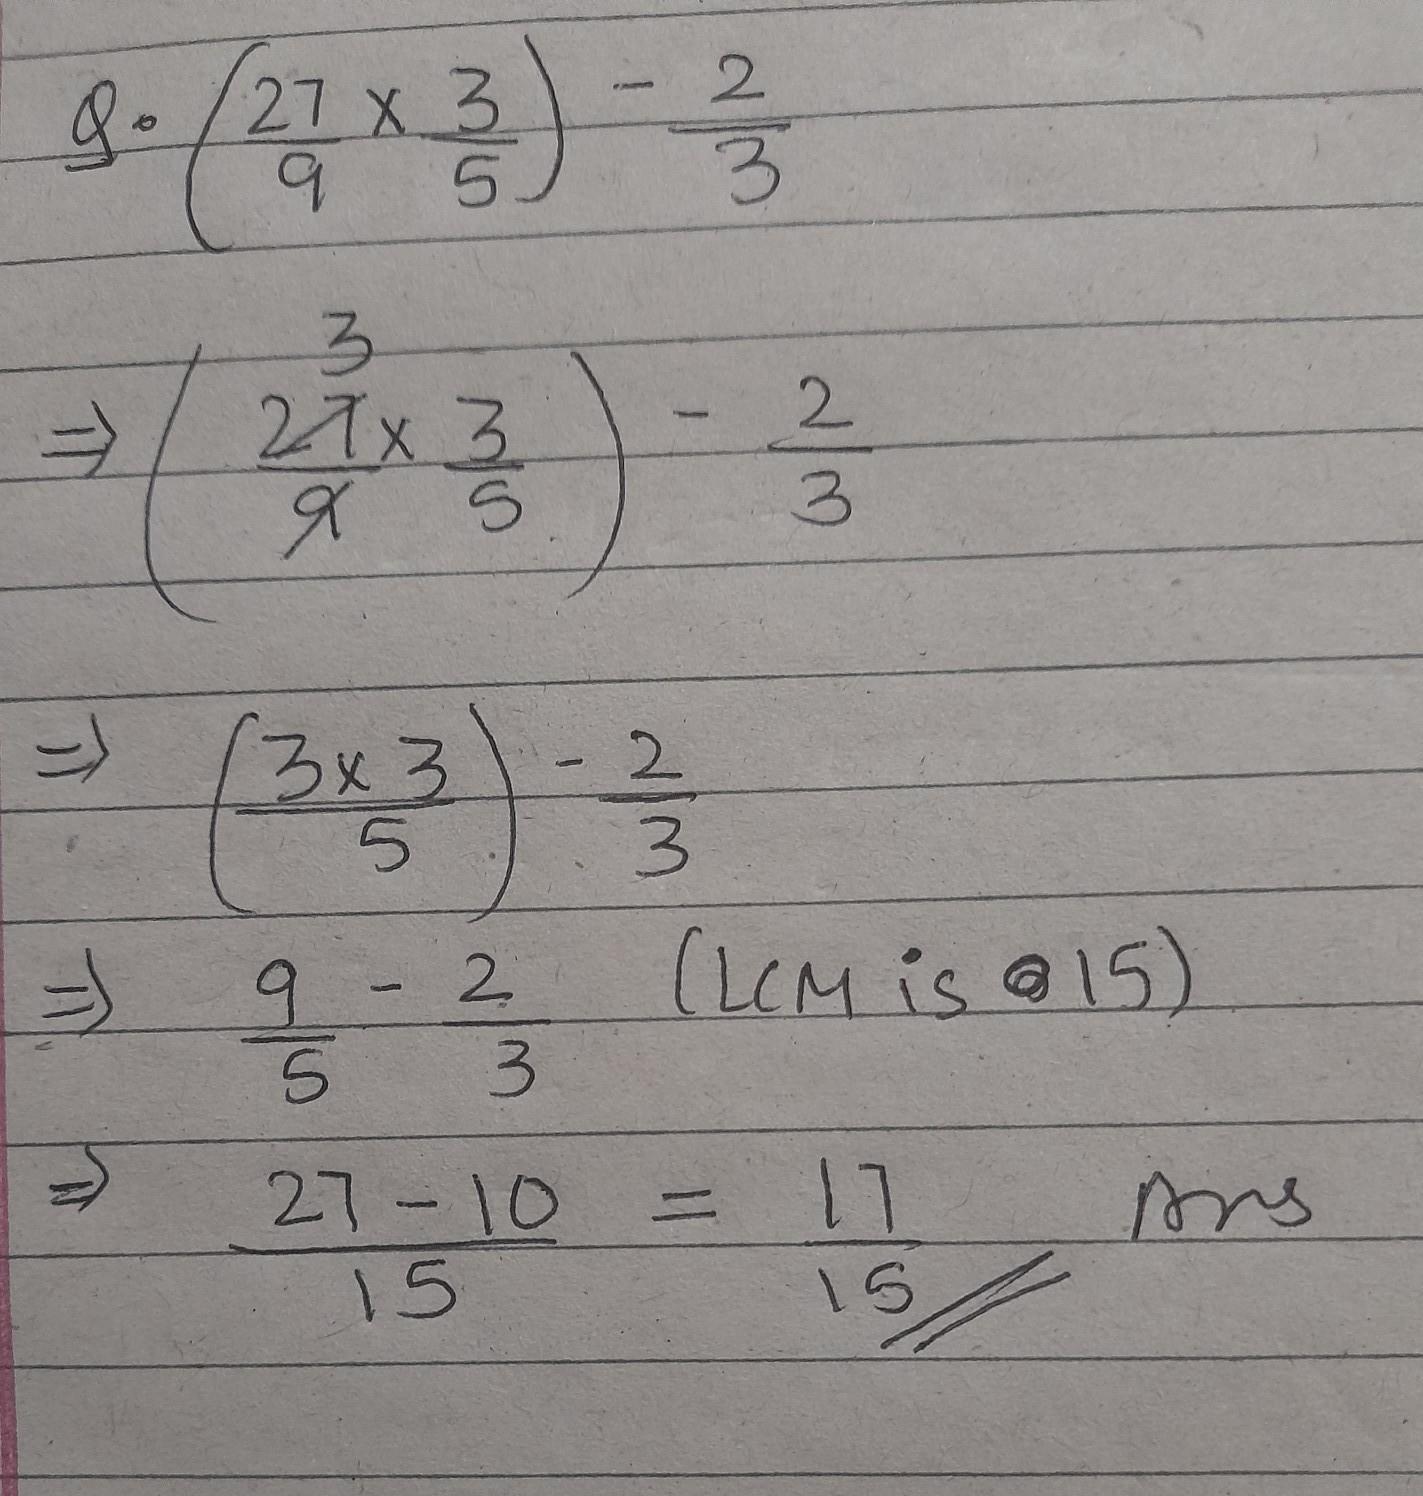 Q. (27/9 × 3/5) - 2/3
3
⇒ (27/9 × 3/5) - 2/3
⇒ (3×3/5) - 2/3
⇒ 9/5 - 2/3 (LCM is 15)
⇒ 27-10/15 = 17/15 Ans